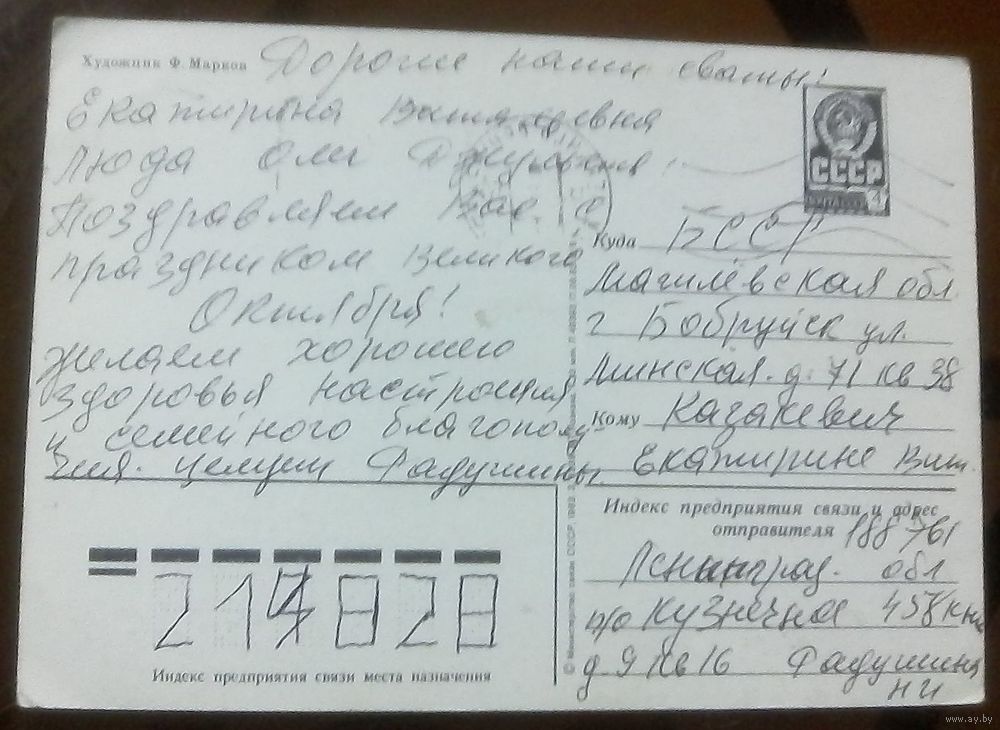 Художник Ф. Марков
Дорогие наши сваты!
Екатирина
Люда Оли
Поздравляем Вас с
праздником Великого
Октября!
желаем хорошего
здоровья настроения
и семейного благополу-
чия. целуем Фадушины
СССР
4
Куда БССР
Магилёвская обл.
г Бобруйск ул.
Минская. д. 71 кв 38
Кому Казакевич
Екатирине Вит.
Индекс предприятия связи и адрес
отправителя 188761
обл
п/о Кузнечное
д. 9 кв 16 Фадушина
Н И
Индекс предприятия связи места назначения
www.ay.by